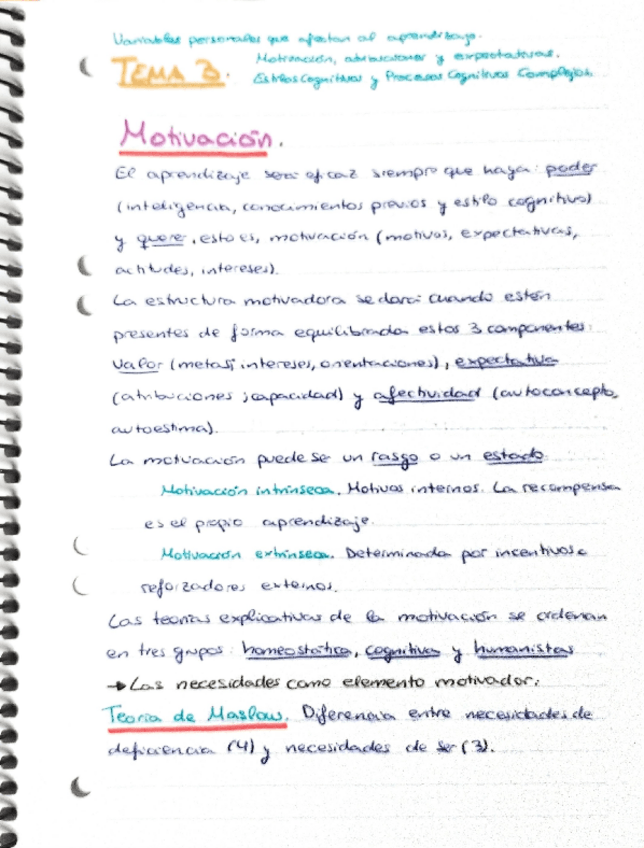 Variables personales que afectan al aprendizaje.
TEMA 3. Motivación, atribuciones y expectativas.
Estilos Cognitivos y Procesos Cognitivos Complejos.
Motivación.
El aprendizaje será eficaz siempre que haya: poder
(inteligencia, conocimientos previos y estilo cognitivo)
y querer, esto es, motivación (motivos, expectativas,
actitudes, intereses).
La estructura motivadora se dará cuando estén
presentes de forma equilibrada estos 3 componentes:
Valor (metas, intereses, orientaciones), expectativa
(atribuciones, capacidad) y afectividad (autoconcepto,
autoestima).
La motivación puede ser un rasgo o un estado
Motivación intrínseca. Motivos internos. La recompensa
es el propio aprendizaje.
Motivación extrínseca. Determinada por incentivos
reforzadores externos.
Las teorías explicativas de la motivación se ordenan
en tres grupos: homeostática, cognitiva y humanistas
→ Las necesidades como elemento motivador.
Teoría de Maslow. Diferencia entre necesidades de
deficiencia (4) y necesidades de ser (3).